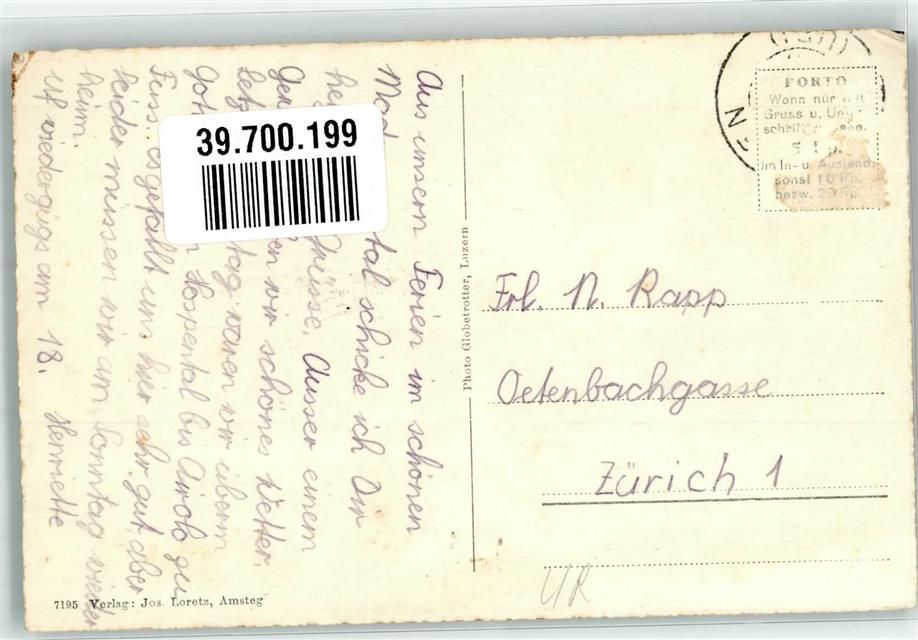 39.700.199
Aus unsern Ferien im schönen
Mad tal schicke ich Dir
he Grüsse. Ausser einem
Ge en wir schönes Wetter.
Letz tag waren wir überm
Got n Hospental bis Airolo zu
Fuss. es gefällt uns hier sehr gut, aber
leider müssen wir am Sonntag wieder
heim.
Uf wiedergügs am 18.
Henriette
7195 Verlag: Jos. Loretz, Amsteg
Photo Globetrotter, Luzern
PORTO
Wenn nur mit
Gruss u. Unter
schrift
5
Im In- u. Ausland
sonst 10 Rp.
bezw. 20 Rp.
N
Frl. N. Rapp
Oetenbachgasse
Zürich 1
UR